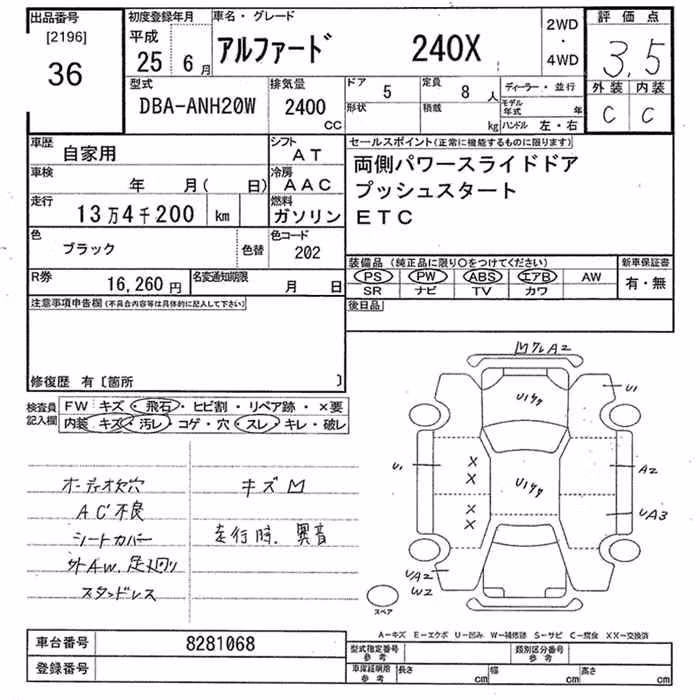 出品番号 初度登録年月 車名・グレード 2WD・4WD 評価点
[2196] 平成
36 25 6月 アルファード 240X 3.5
型式 排気量 ドア 定員 ディーラー・並行 外装 内装
DBA-ANH20W 2400cc 5 8人 モデル年式 年 C C
形状 積載 kg ハンドル 左・右
車歴 自家用 シフト AT セールスポイント(正常に機能するものに限ります)
車検 年 月( 日) 冷房 AAC 両側パワースライドドア
走行 13万4千200 km 燃料 ガソリン プッシュスタート
ETC
色 ブラック 色替 色コード 202
装備品(純正品に限り○をつけてください) 新車保証書
R券 16,260円 名変通知期限 月 日 PS PW ABS エアB AW 有・無
SR ナビ TV カワ
注意事項申告欄(不具合内容等は具体的に記入して下さい) 後日品
修復歴 有〔箇所 〕
検査員 FW キズ・飛石・ヒビ割・リペア跡・×要
記入欄 内装 キズ・汚レ・コゲ・穴・スレ・キレ・破レ
オーディオ欠穴 キズM
AC不良
シートカバー 走行時、異音
外AW、足廻り
スタッドレス
MグレA2
U1
U1ケケ
U1 × A2
× U1ケケ
×
× UA3
UA2
W2
スペア
A-キズ E-エクボ U-凹み W-補修跡 S-サビ C-腐食 XX-交換済
車台番号 8281068 型式指定番号 参考 類別区分番号 参考
登録番号 車庫証明用 参考 長さ cm 幅 cm 高さ cm